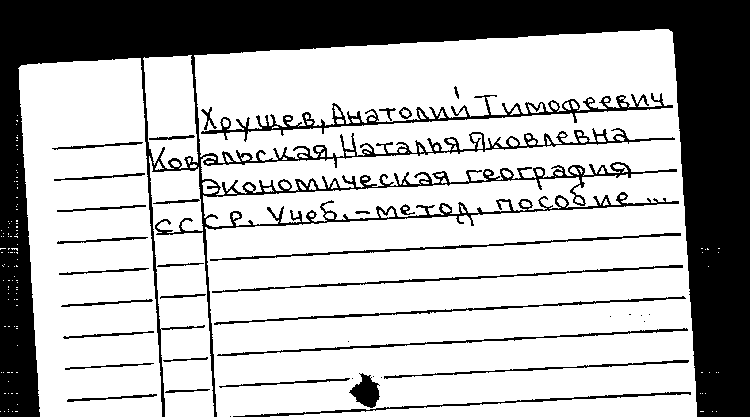 Хрущев, Анатолий Тимофеевич
Ковальская, Наталья Яковлевна
Экономическая география
СССР. Учеб.-метод. пособие ...